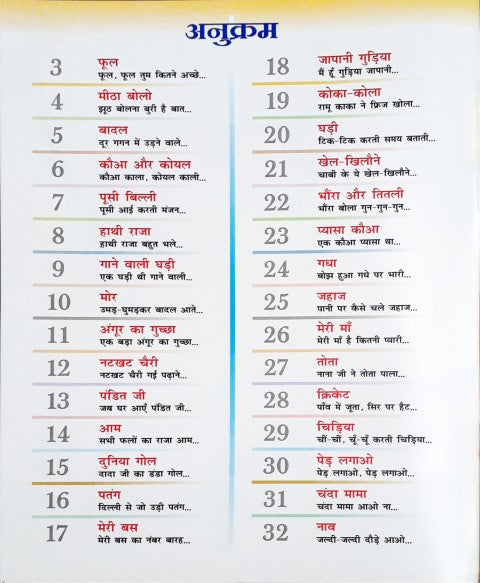 अनुक्रम
3 फूल
फूल, फूल तुम कितने अच्छे...
4 मीठा बोलो
झूठ बोलना बुरी है बात...
5 बादल
दूर गगन में उड़ने वाले...
6 कौआ और कोयल
कौआ काला, कोयल काली...
7 पूसी बिल्ली
पूसी आई करती मंजन...
8 हाथी राजा
हाथी राजा बहुत भले...
9 गाने वाली घड़ी
एक घड़ी थी गाने वाली...
10 मोर
उमड़-घुमड़कर बादल आते...
11 अंगूर का गुच्छा
एक बड़ा अंगूर का गुच्छा...
12 नटखट चैरी
नटखट चैरी गई पढ़ाने...
13 पंडित जी
जब घर आएँ पंडित जी...
14 आम
सभी फलों का राजा आम...
15 दुनिया गोल
दादा जी का डंडा गोल...
16 पतंग
दिल्ली से जो उड़ी पतंग...
17 मेरी बस
मेरी बस का नंबर बारह...
18 जापानी गुड़िया
मैं हूँ गुड़िया जापानी...
19 कोका-कोला
रामू काका ने फ्रिज खोला...
20 घड़ी
टिक-टिक करती समय बताती...
21 खेल-खिलौने
चाबी के ये खेल-खिलौने...
22 भौंरा और तितली
भौंरा बोला गुन-गुन-गुन...
23 प्यासा कौआ
एक कौआ प्यासा था...
24 गधा
बोझ हुआ गधे पर भारी...
25 जहाज
पानी पर कैसे चले जहाज...
26 मेरी माँ
मेरी माँ है कितनी प्यारी...
27 तोता
नाना जी ने तोता पाला...
28 क्रिकेट
पाँव में जूता, सिर पर हैट...
29 चिड़िया
चीं-चीं, चूँ-चूँ करती चिड़िया...
30 पेड़ लगाओ
पेड़ लगाओ, पेड़ लगाओ...
31 चंदा मामा
चंदा मामा आओ ना...
32 नाव
जल्दी-जल्दी दौड़े आओ...